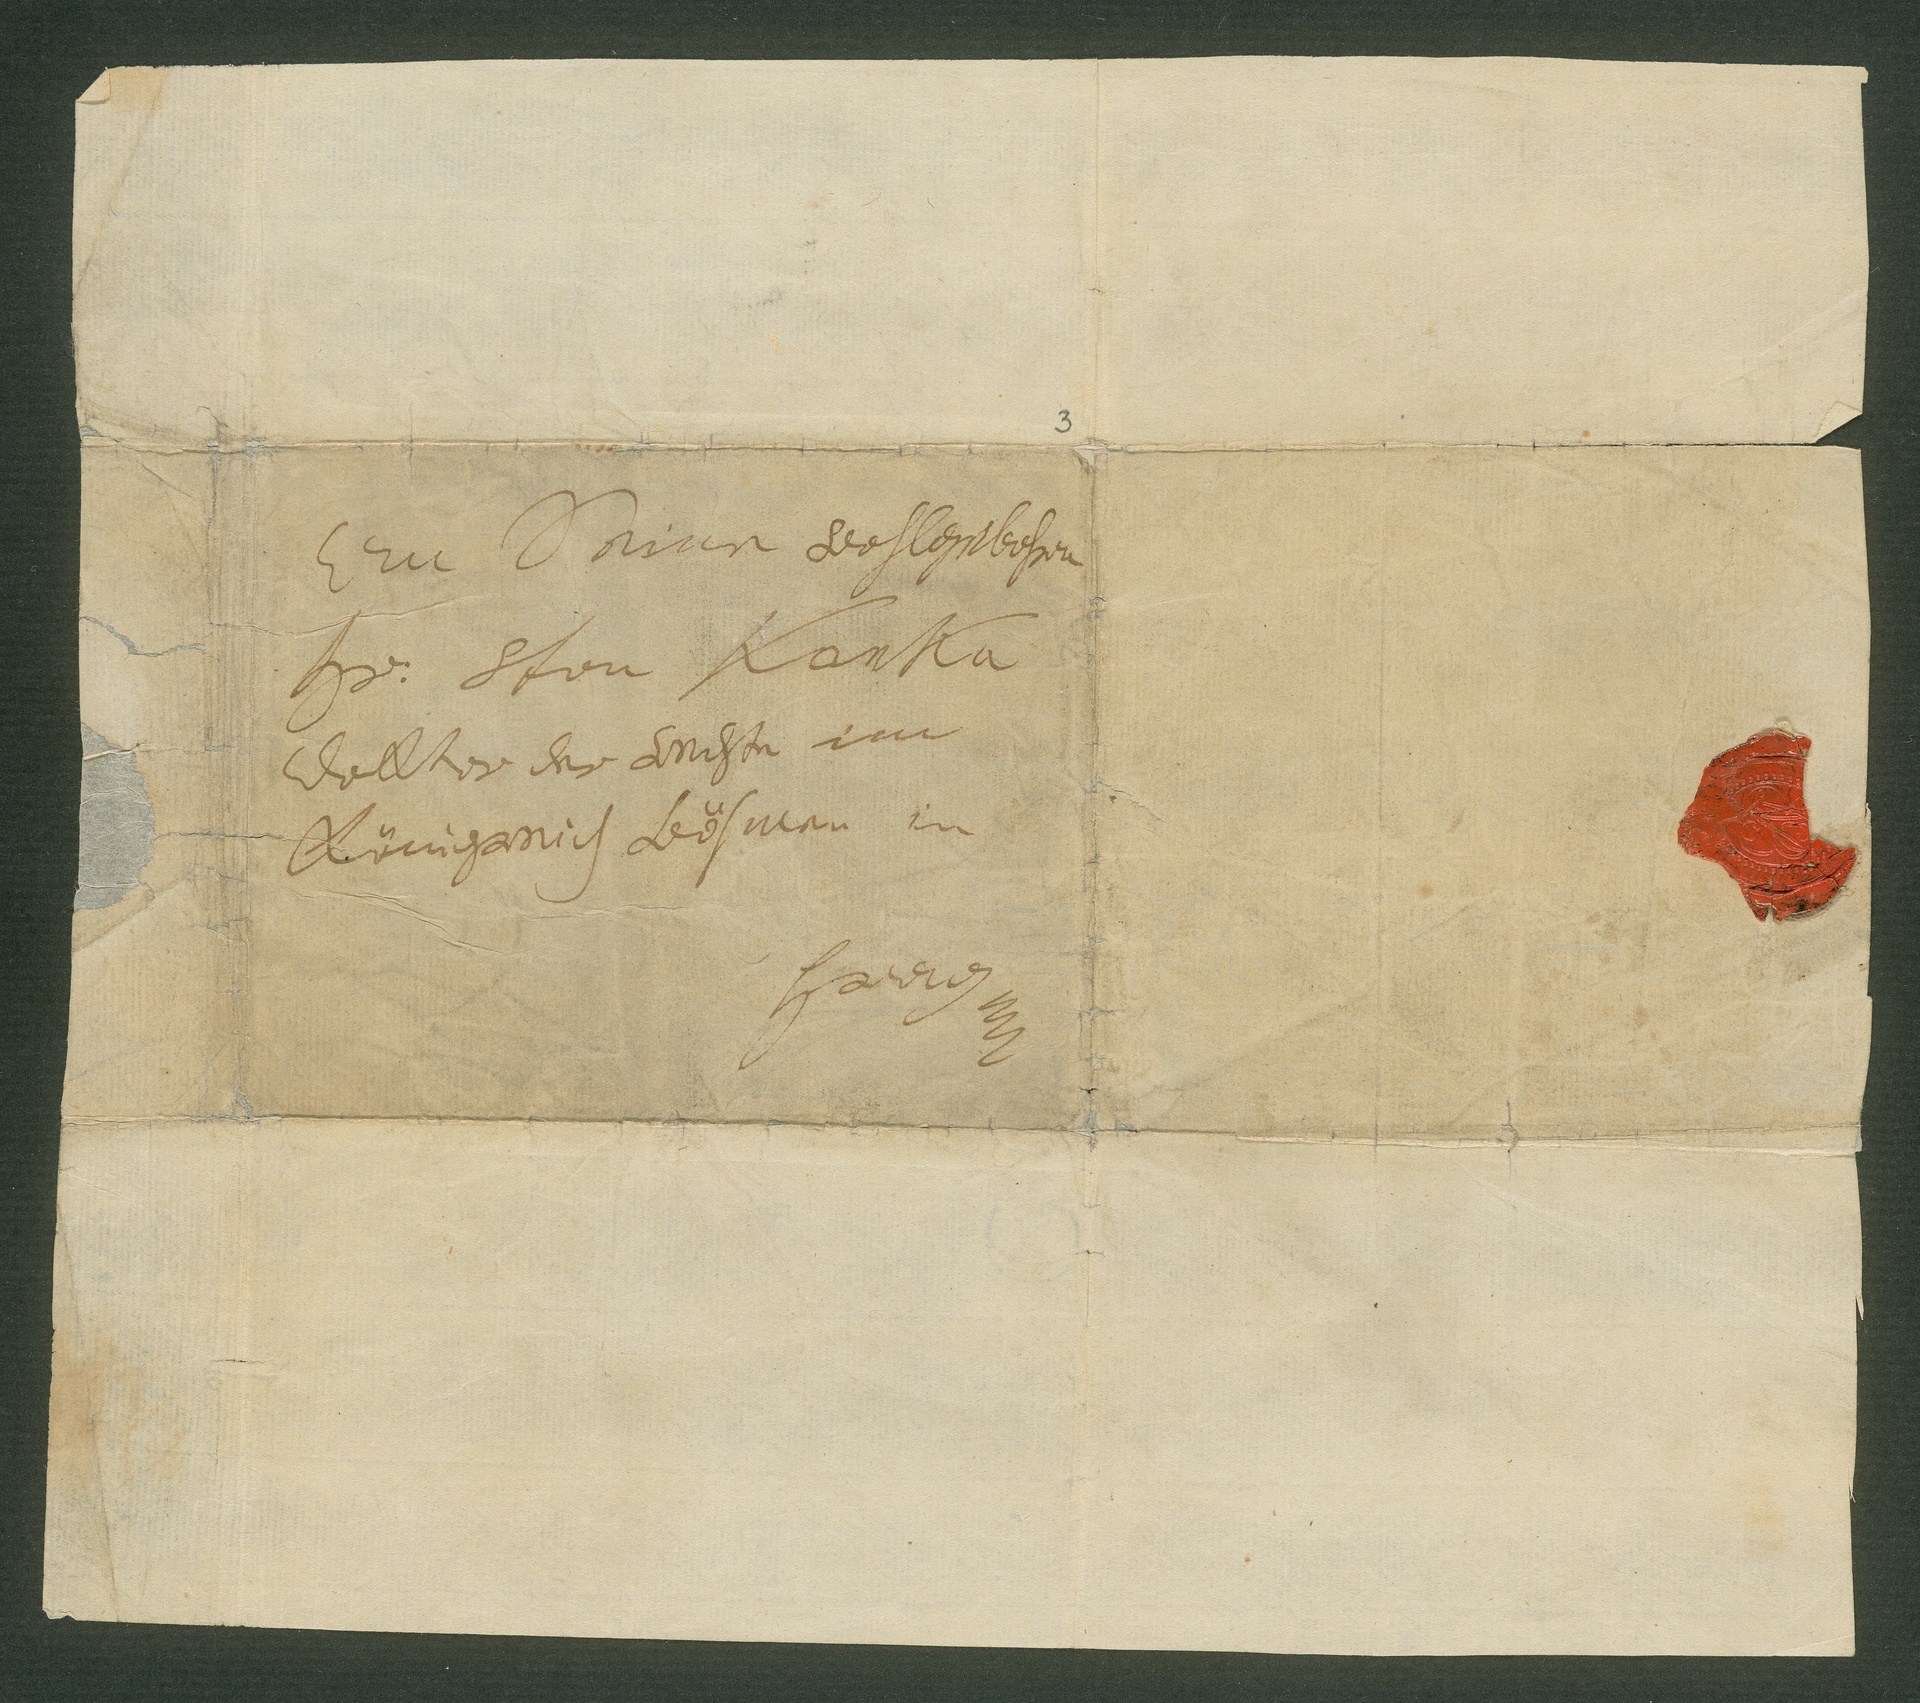 3
Seiner wohlgebohren
Hr: von Kanka
Doktor der Rechte im
Königreich Böhmen in
Prag